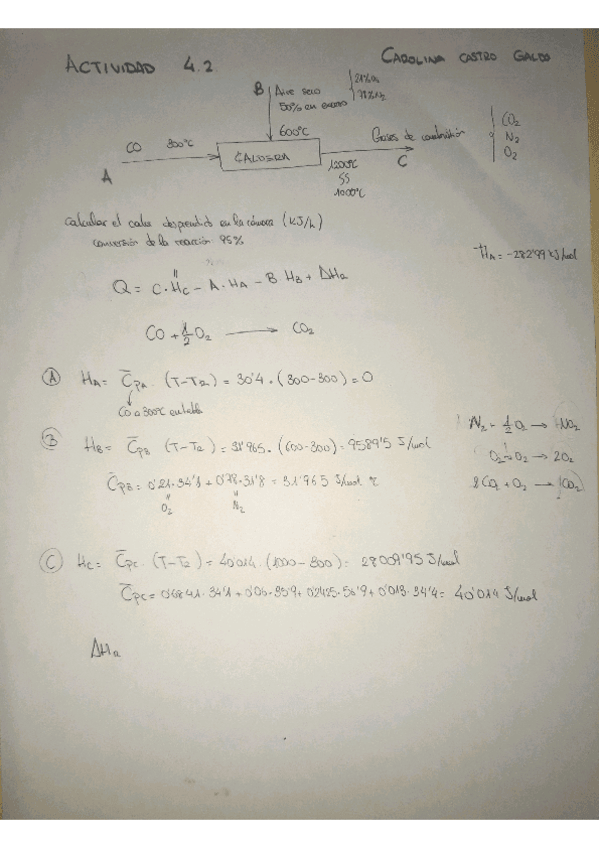 ACTIVIDAD 4.2. CAROLINA CASTRO GALDO
B Aire seco 50% en exceso
21% O2
79% N2
600ºC
CO 300ºC
A
CALDERA
Gases de combustión
C
1200ºC
SS
1000ºC
CO2
N2
O2
Calcular el calor desprendido en la cámara (KJ/h)
conversión de la reacción 95%
HA = -282'99 KJ/mol
Q = C·HC - A·HA - B HB + ΔHR
CO + 1/2 O2 → CO2
A HA = C̄PA · (T-TR) = 30'4 · (300-300) = 0
CO a 300ºC en tabla
B HB = C̄PB (T-TR) = 31'965 · (600-300) = 9589'5 J/mol
C̄PB = 0'21·34'1 + 0'78·31'8 = 31'965 J/mol ºC
O2 N2
O2 → 2O2
C HC = C̄PC · (T-TR) = 40'014 · (1000-300) = 28009'95 J/mol
C̄PC = 0'6841·34'1 + 0'06·35'9 + 0'2425·56'9 + 0'013·34'4 = 40'014 J/mol
ΔHR